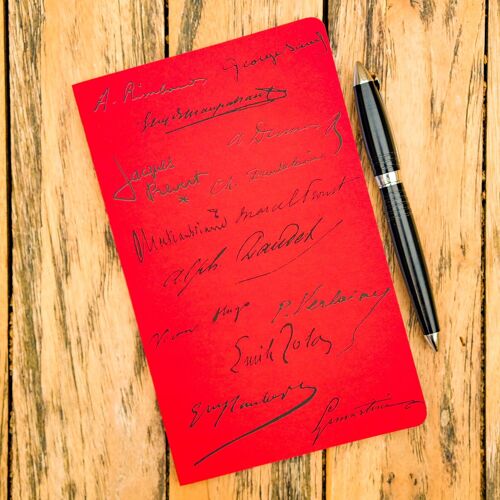 A. Rimbaud George Sand
Guy de Maupassant
A Dumas
Jacques Prévert
Ch. Baudelaire
Chateaubriand Marcel Proust
Alph. Daudet
Victor Hugo P. Verlaine
Emile Zola
Gve Flaubert
Lamartine